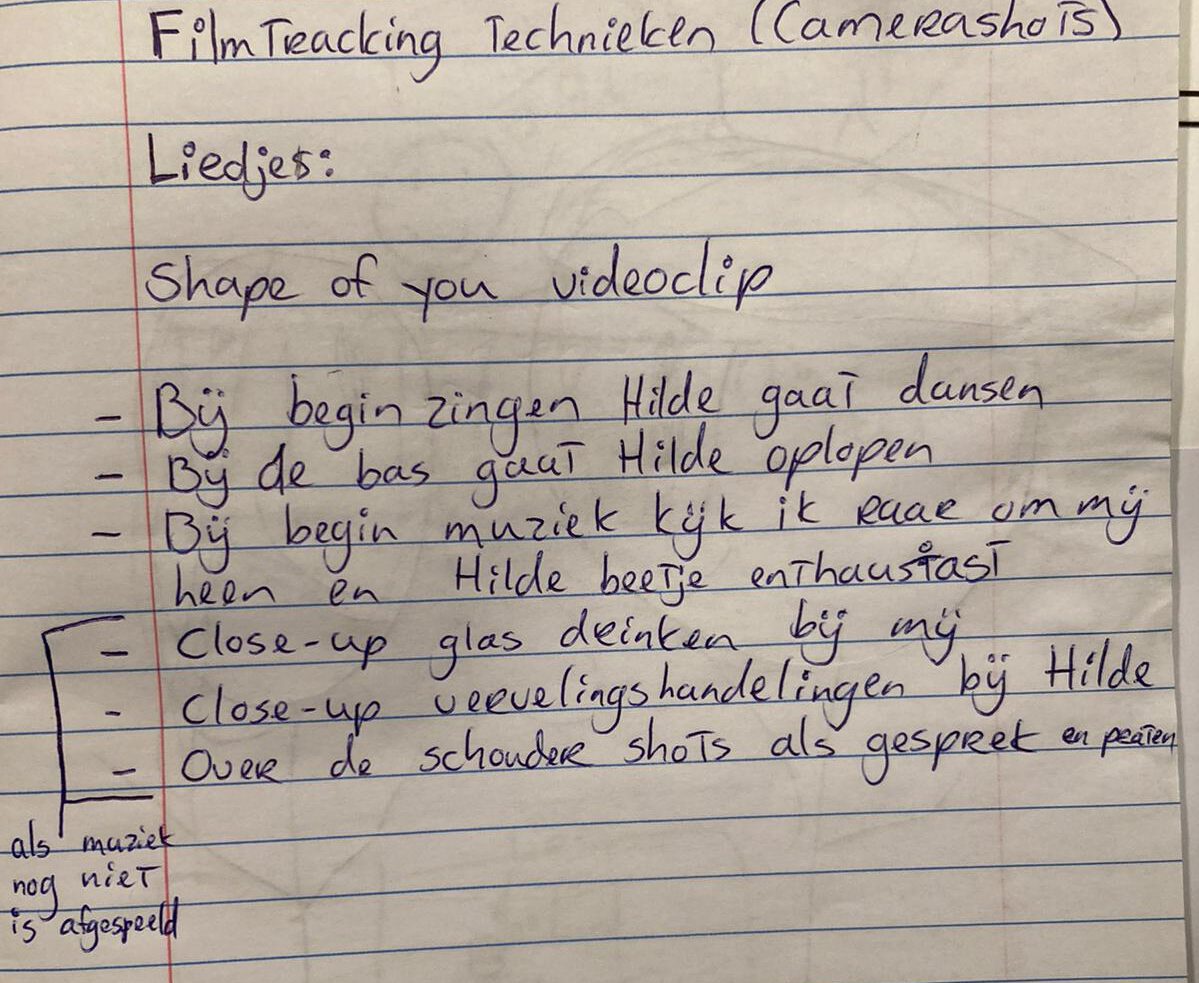 FilmTracking Technieken (Camerashots)
Liedjes:
Shape of you videoclip
- Bij begin zingen Hilde gaat dansen
- Bij de bas gaat Hilde oplopen
- Bij begin muziek kijk ik raar om mij
heen en Hilde beetje enthausiast
- Close-up glas drinken bij mij
- Close-up vervelingshandelingen bij Hilde
- Over de schouder shots als gesprek en praten
als muziek
nog niet
is afgespeeld